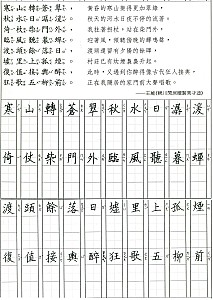 寒山轉蒼翠，黃昏的寒山變得更加翠綠，
秋水日潺湲。秋天的河水日夜不停的流著。
倚杖柴門外，我拄著枴杖，站在柴門外，
臨風聽暮蟬。迎著風，傾聽傍晚的蟬鳴聲。
渡頭餘落日，渡頭還留有夕陽的餘暉，
墟里上孤煙。村莊已有炊煙裊裊升起。
復值接輿醉，此時，又遇到你醉得像古代狂人接輿，
狂歌五柳前。正在我隱居的家門前大聲唱歌。
——王維(輞川閒居贈裴秀才迪)
寒山轉蒼翠秋水日潺湲
倚仗柴門外臨風聽暮蟬
渡頭餘落日墟里上孤煙
復值接輿醉狂歌五柳前